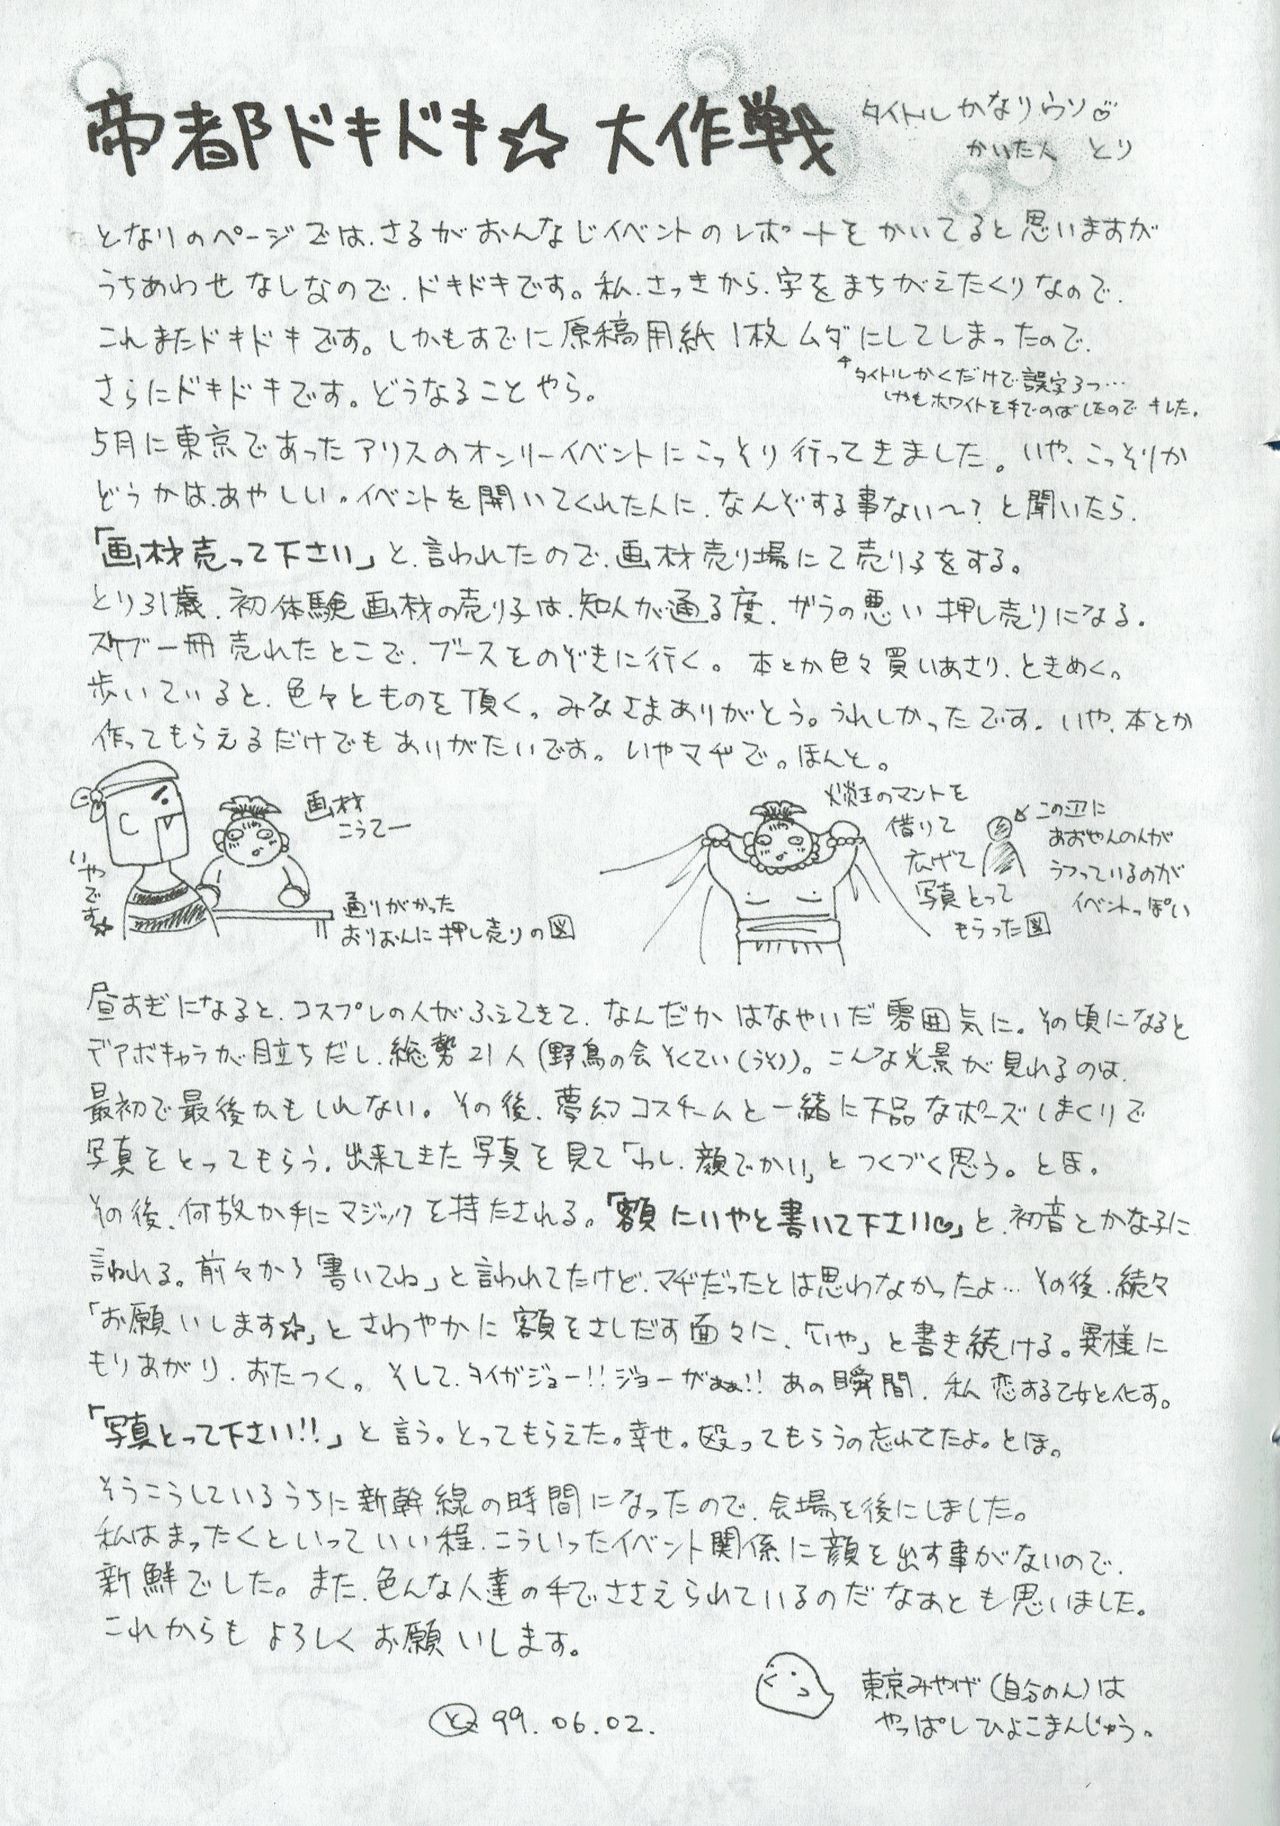 帝都ドキドキ☆大作戦
タイトルかなりウソ♡
かいた人 とり
となりのページでは、さるがおんなじイベントのレポートをかいてると思いますが
うちあわせなしなので、ドキドキです。私、さっきから、字をまちがえたくりなので、
これまたドキドキです。しかもすでに原稿用紙1枚ムダにしてしまったので、
↑タイトルかくだけで誤字3つ…
しかもホワイトを手でのばしたのでキレた。
さらにドキドキです。どうなることやら。
5月に東京であったアリスのオンリーイベントにこっそり行ってきました。いや、こっそりか
どうかは、あやしい。イベントを開いてくれた人に、なんぞする事ない〜?と聞いたら、
「画材売って下さい」と、言われたので、画材売り場にて売り子をする。
とり31歳、初体験画材の売り子は、知人が通る度、ガラの悪い押し売りになる。
スケブ一冊売れたとこで、ブースをのぞきに行く。本とか色々買いあさり、ときめく。
歩いていると、色々とものを頂く。みなさまありがとう。うれしかったです。いや、本とか
作ってもらえるだけでもありがたいです。いやマヂで。ほんと。
いやです☆
画材
こうてー
通りがかった
おりおんに押し売りの図
炎王のマントを
借りて
広げて
写真とって
もらった図
この辺に
あおやんの人が
うつっているのが
イベントっぽい
昼すぎになると、コスプレの人がふえてきて、なんだかはなやいだ雰囲気に。その頃になると
デアボキャラが目立ちだし、総勢21人(野鳥の会そくてい(うそ))。こんな光景が見れるのは、
最初で最後かもしれない。その後、夢幻コスチームと一緒に下品なポーズしまくりで
写真をとってもらう。出来てきた写真を見て「わし、顔でかい」とつくづく思う。とほ。
その後、何故か手にマジックを持たされる。「額にいやと書いて下さい♡」と、初音とかな子に
言われる。前々から「書いてね」と言われてたけど、マヂだったとは思わなかったよ…その後、続々
「お願いします☆」とさわやかに額をさしだす面々に、「いや」と書き続ける。異様に
もりあがり、おたつく。そして、タイガジョー!!ジョーがぁぁ!!あの瞬間、私、恋する乙女と化す。
「写真とって下さい!!」と言う。とってもらえた。幸せ。殴ってもらうの忘れてたよ。とほ。
そうこうしているうちに新幹線の時間になったので、会場を後にしました。
私はまったくといっていい程、こういったイベント関係に顔を出す事がないので、
新鮮でした。また、色んな人達の手でささえられているのだなあとも思いました。
これからもよろしくお願いします。
と 99.06.02.
東京みやげ(自分のん)は
やっぱしひよこまんじゅう。